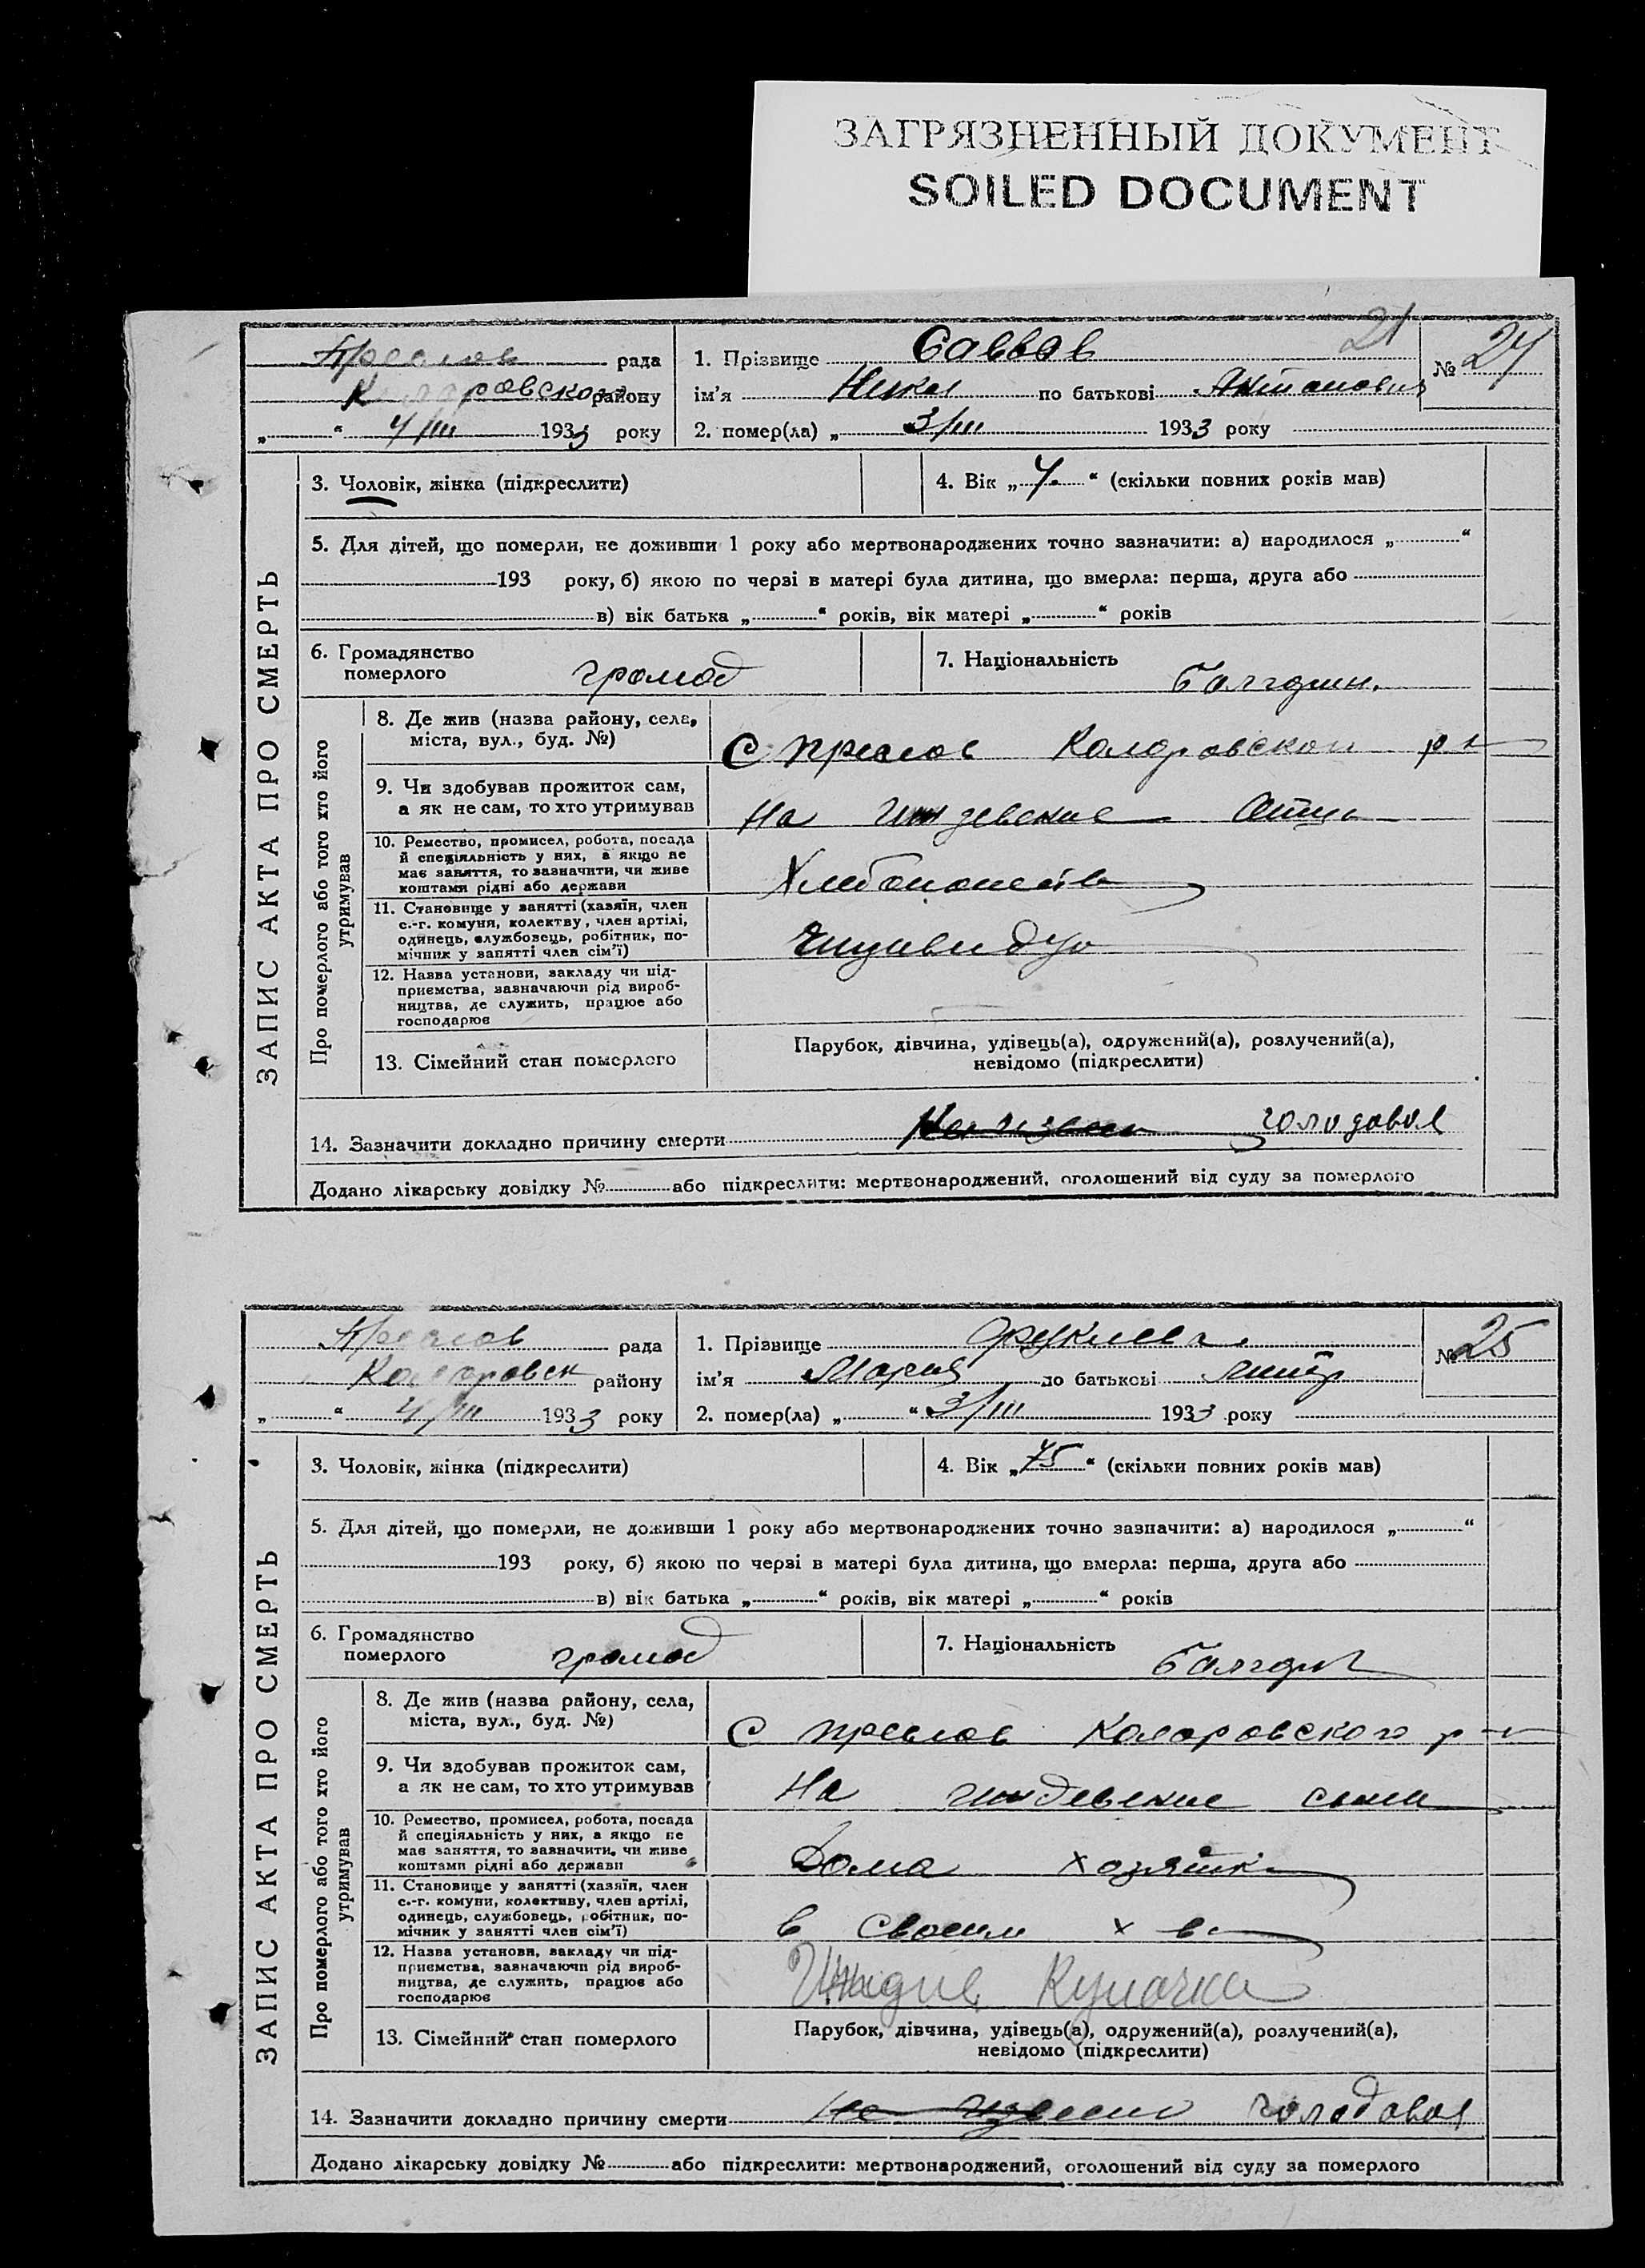 ЗАГРЯЗНЕННЫЙ ДОКУМЕНТ
SOILED DOCUMENT
21
Преслов рада
1. Прізвище Саввов
№ 24
району
ім'я по батькові Антонович
„ “ 4/III 1933 року
2. помер(ла) „ 3/III 1933 року
ЗАПИС АКТА ПРО СМЕРТЬ
3. Чоловік, жінка (підкреслити)
4. Вік „ 7. “ (скільки повних років мав)
5. Для дітей, що померли, не доживши 1 року або мертвонароджених точно зазначити: а) народилося „ “
193 року, б) якою по черзі в матері була дитина, що вмерла: перша, друга або
в) вік батька „ “ років, вік матері „ “ років
6. Громадянство
померлого громад
7. Національність
болгарин.
Про померлого або того хто його
утримував
8. Де жив (назва району, села,
міста, вул., буд. №)
С Преслов Коларовского р-н
9. Чи здобував прожиток сам,
а як не сам, то хто утримував
На иждевение отца
10. Ремество, промисел, робота, посада
й спеціяльність у них, а якщо не
має заняття, то зазначити, чи живе
коштами рідні або держави
Хлебопашеств
11. Становище у занятті (хазяїн, член
с.-г. комуни, колективу, член артілі,
одинець, службовець, робітник, по-
мічник у занятті член сім'ї)
12. Назва установи, закладу чи під-
приємства, зазначаючи рід вироб-
ництва, де служить, працює або
господарює
13. Сімейний стан померлого
Парубок, дівчина, удівець(а), одружений(а), розлучений(а),
невідомо (підкреслити)
14. Зазначити докладно причину смерти голодовая
Додано лікарську довідку № або підкреслити: мертвонароджений, оголошений від суду за померлого
Преслов рада
1. Прізвище
№ 25
Коларовск району
ім'я Мария по батькові
„ “ 4/III 1933 року
2. помер(ла) „ “ 3/III 1933 року
ЗАПИС АКТА ПРО СМЕРТЬ
3. Чоловік, жінка (підкреслити)
4. Вік „ 75 “ (скільки повних років мав)
5. Для дітей, що померли, не доживши 1 року або мертвонароджених точно зазначити: а) народилося „ “
193 року, б) якою по черзі в матері була дитина, що вмерла: перша, друга або
в) вік батька „ “ років, вік матері „ “ років
6. Громадянство
померлого громад
7. Національність
Про померлого або того хто його
утримував
8. Де жив (назва району, села,
міста, вул., буд. №)
С Преслов Коларовского р-н
9. Чи здобував прожиток сам,
а як не сам, то хто утримував
На иждевение сына
10. Ремество, промисел, робота, посада
й спеціяльність у них, а якщо не
має заняття, то зазначити, чи живе
коштами рідні або держави
Дома хозяйка
11. Становище у занятті (хазяїн, член
с.-г. комуни, колективу, член артілі,
одинець, службовець, робітник, по-
мічник у занятті член сім'ї)
в своем х-ве
12. Назва установи, закладу чи під-
приємства, зазначаючи рід вироб-
ництва, де служить, працює або
господарює
13. Сімейний стан померлого
Парубок, дівчина, удівець(а), одружений(а), розлучений(а),
невідомо (підкреслити)
14. Зазначити докладно причину смерти голодовая
Додано лікарську довідку № або підкреслити: мертвонароджений, оголошений від суду за померлого